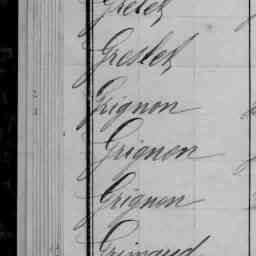 Grelet
Greslet
Grignon
Grignon
Grignon
Grimaud